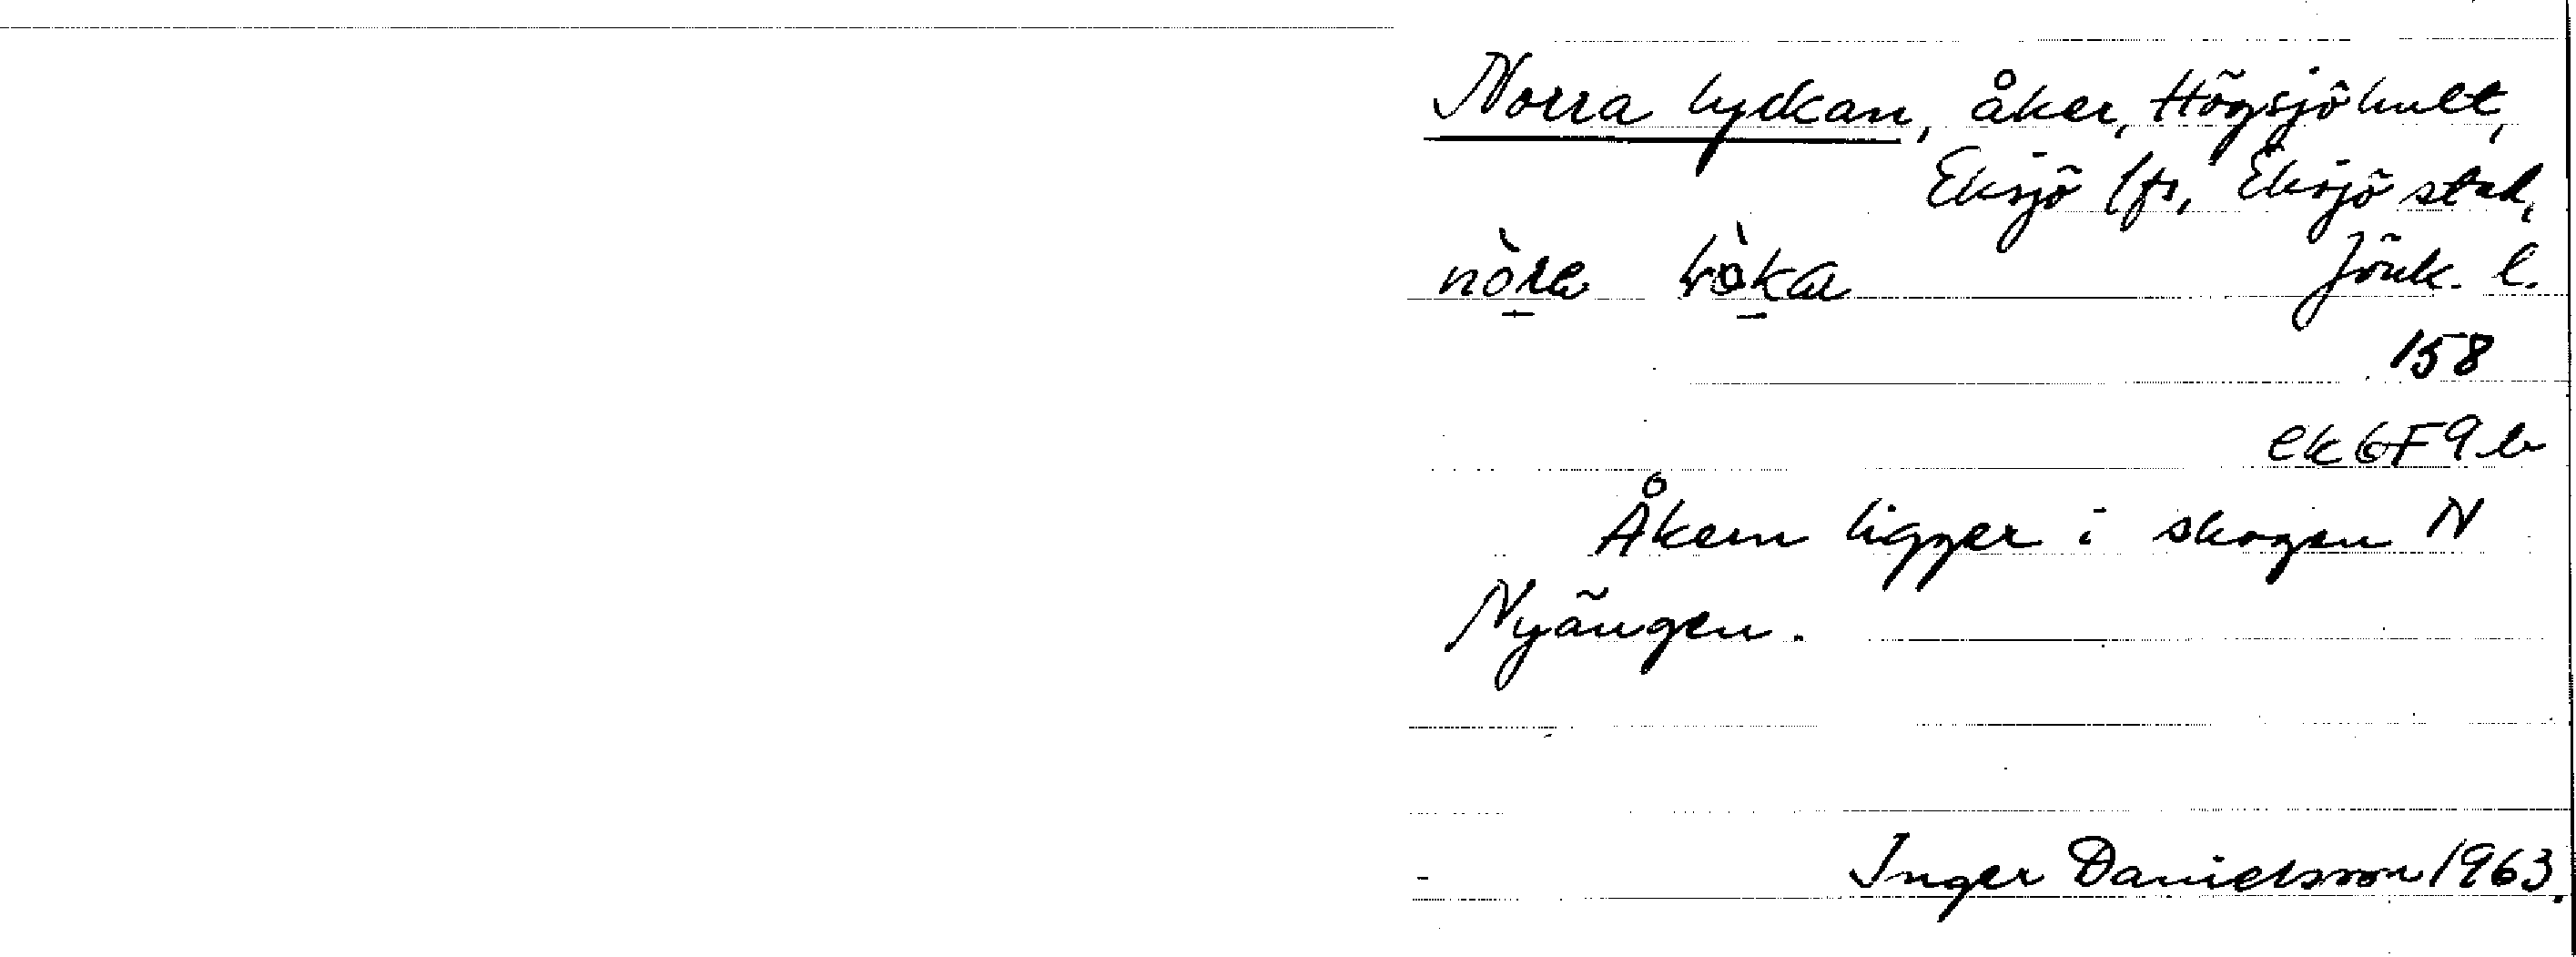 Norra lyckan, åker, Högsjöhult,
Eksjö lfs, Eksjö stad,
nòra Jönk. l.
158
ek 6F9b
Åkern ligger i skogen N
Nyängen.
Inger Danielsson 1963.